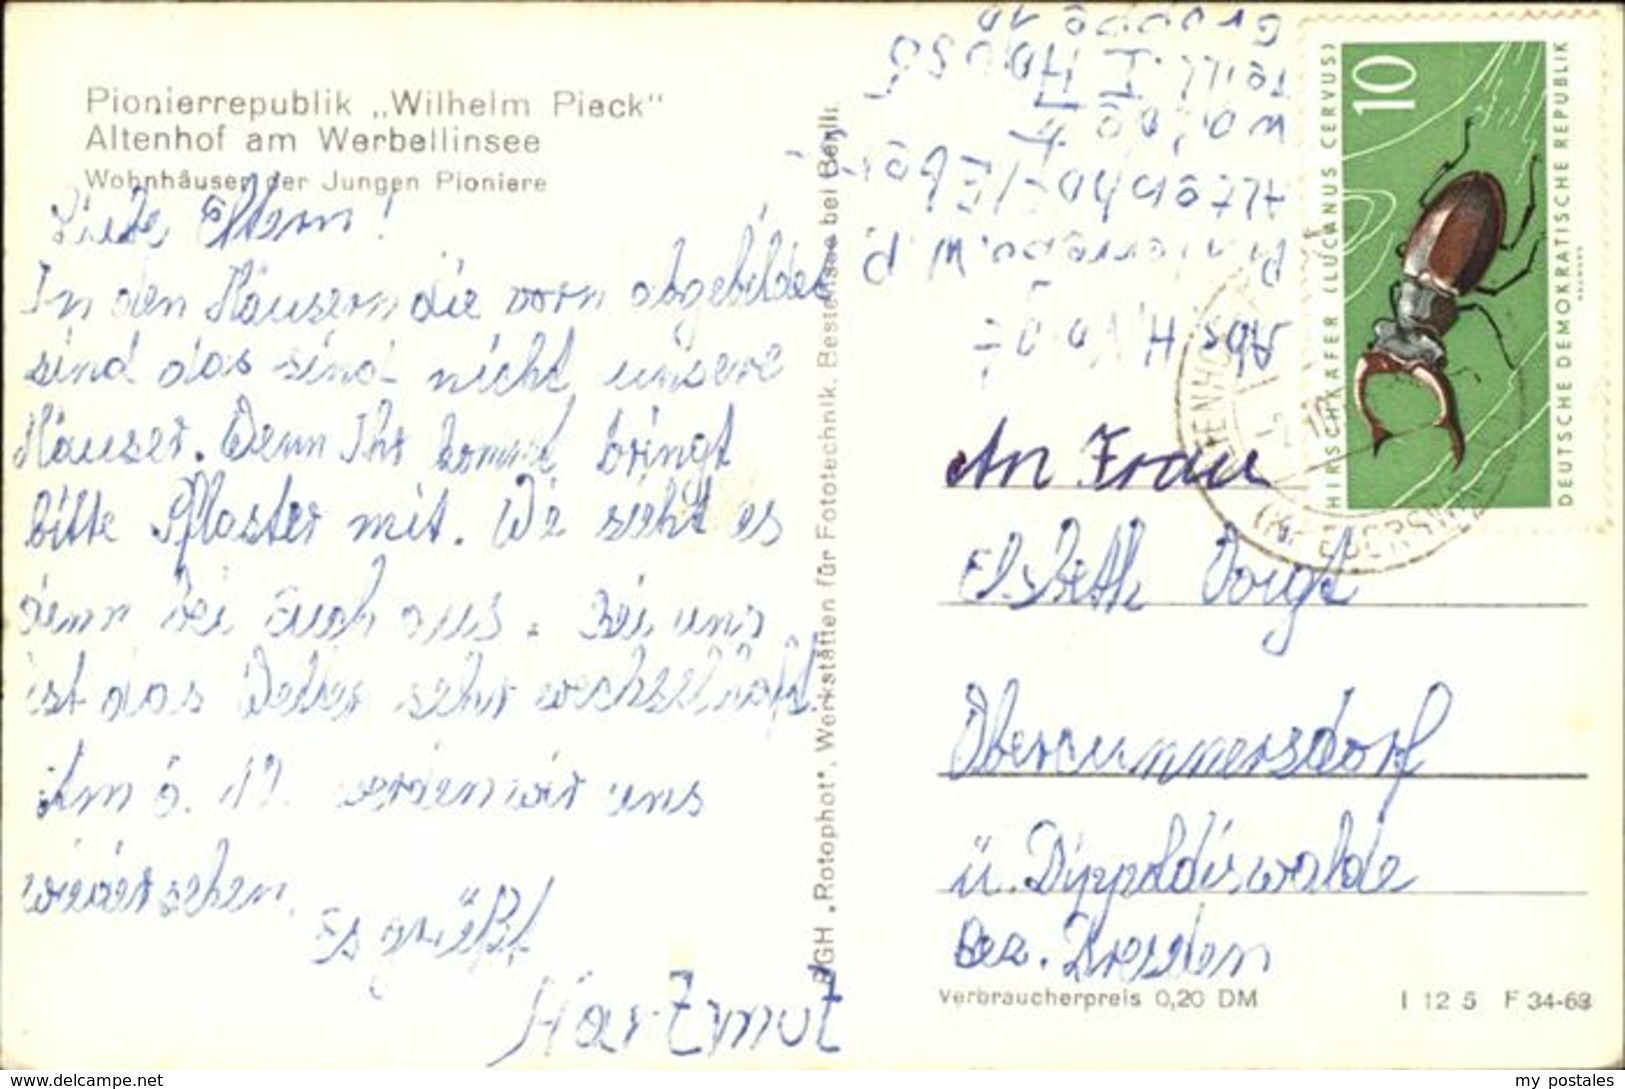 Pionierrepublik „Wilhelm Pieck"
Altenhof am Werbellinsee
Wohnhäuser der Jungen Pioniere
Liebe Eltern!
In den Häusern die vorn abgebildet
sind das sind nicht unsere
Häuser. Wenn Ihr kommt bringt
bitte Pflaster mit. Wie sieht es
denn bei Euch aus. Bei uns
ist das Wetter sehr wechselhaft.
Am 6. 12. werden wir uns
wiedersehen.
Es grüßt
Hartmut
PGH „Rotophot", Werkstätten für Fototechnik, Bestensee bei Berlin
Abs. H. Voigt
Pionierrep. W. P.
Gruppe 10
HIRSCHKÄFER (LUCANUS CERVUS)
10
DEUTSCHE DEMOKRATISCHE REPUBLIK
An Frau
Elsbeth Voigt
Obercunnersdorf
ü. Dippoldiswalde
Bez. Dresden
Verbraucherpreis 0,20 DM
I 12 5 F 34-63
my postales